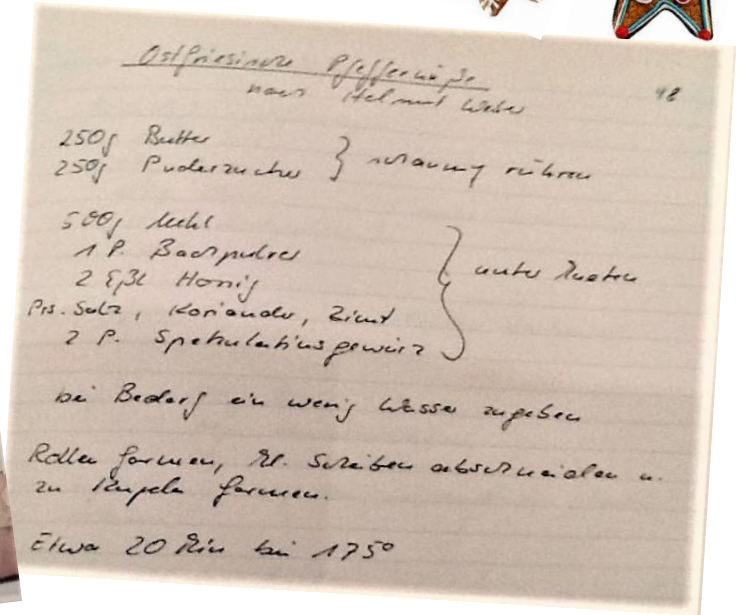 Ostfriesische Pfeffernüße
nach Helmut Weber
48
250g Butter
250g Puderzucker } schaumig rühren
500g Mehl
1 P. Backpulver
2 Eßl Honig } unter kneten
Prs. Salz, Koriander, Zimt
2 P. Spekulatiusgewürz
bei Bedarf ein wenig Wasser zugeben
Rollen formen, kl. Scheiben abschneiden u.
zu Kugeln formen.
Etwa 20 Min bei 175°